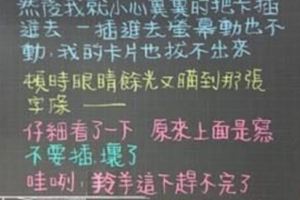 然後我就小心翼翼的把卡插
進去 一插進去螢幕動也不
動,我的卡片也拔不出來
頓時眼睛餘光又瞄到那張
字條——
仔細看了一下 原來上面是寫
不要插,壞了
哇咧!羚羊這下趕不完了